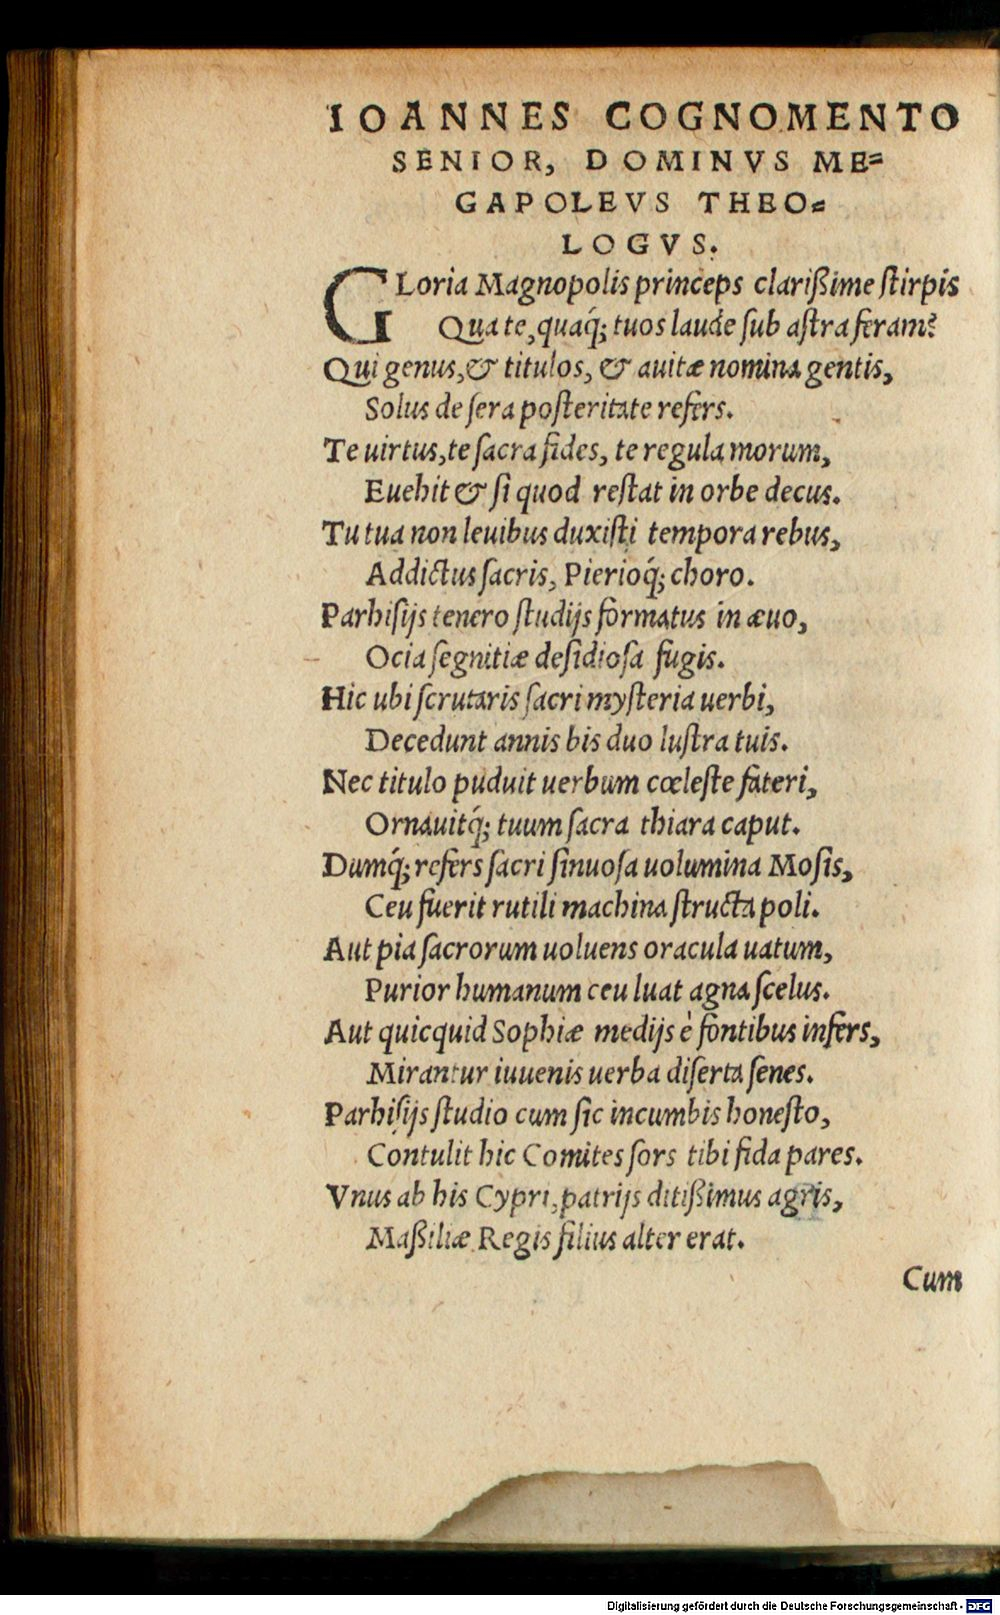 IOANNES COGNOMENTO
SENIOR, DOMINVS ME=
GAPOLEVS THEO=
LOGVS.
GLoria Magnopolis princeps clarißime ſtirpis
Qua te, quaq́; tuos laude ſub aſtra feram?
Qui genus, & titulos, & auitæ nomina gentis,
Solus de ſera poſteritate refers.
Te uirtus, te ſacra fides, te regula morum,
Euehit & ſi quod reſtat in orbe decus.
Tu tua non leuibus duxiſti tempora rebus,
Addictus ſacris, Pierioq́; choro.
Parhiſijs tenero ſtudijs formatus in æuo,
Ocia ſegnitiæ deſidioſa fugis.
Hic ubi ſcrutaris ſacri myſteria uerbi,
Decedunt annis bis duo luſtra tuis.
Nec titulo puduit uerbum cœleſte fateri,
Ornauitq́; tuum ſacra thiara caput.
Dumq́; refers ſacri ſinuoſa uolumina Moſis,
Ceu fuerit rutili machina ſtructa poli.
Aut pia ſacrorum uoluens oracula uatum,
Purior humanum ceu luat agna ſcelus.
Aut quicquid Sophiæ medijs è fontibus infers,
Mirantur iuuenis uerba diſerta ſenes.
Parhiſijs ſtudio cum ſic incumbis honeſto,
Contulit hic Comites ſors tibi fida pares.
Vnus ab his Cypri, patrijs ditißimus agris,
Maßiliæ Regis filius alter erat.
Cum
Digitalisierung gefördert durch die Deutsche Forschungsgemeinschaft - DFG